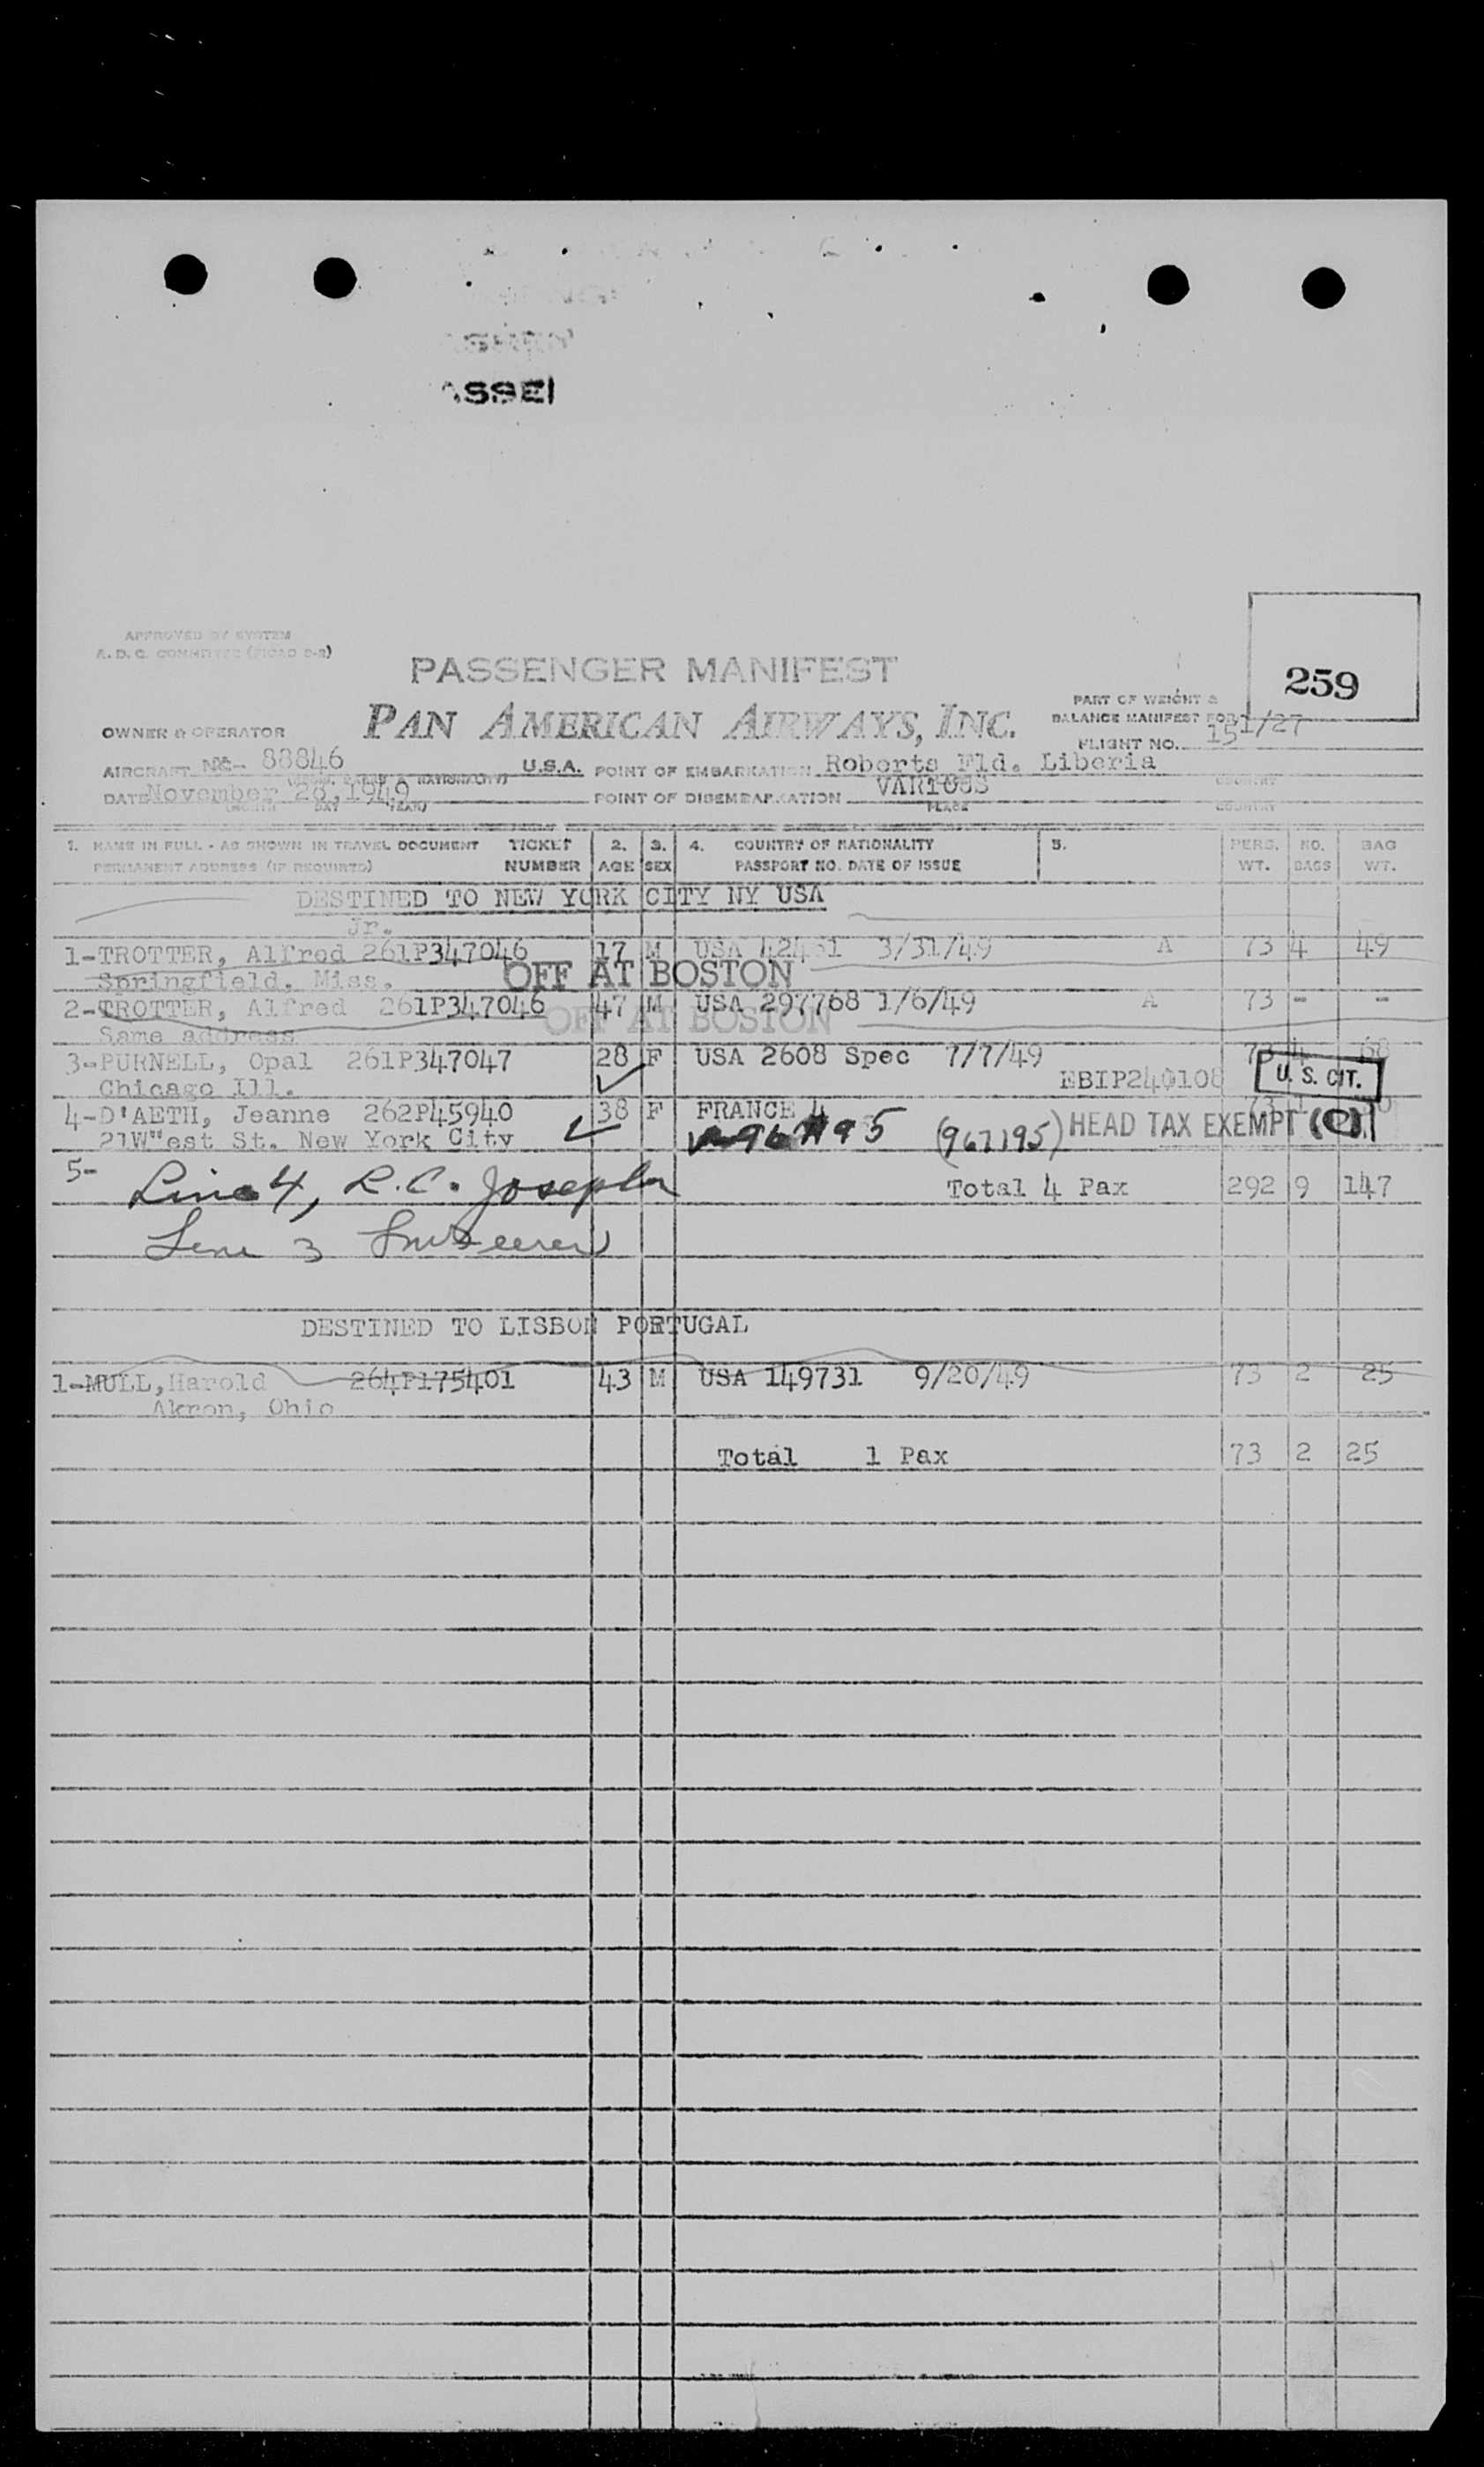 ASSE
APPROVED BY SYSTEM
A. D. C. COMMITTEE (PICAO D-2)
PASSENGER MANIFEST
259
PART OF WEIGHT &
PAN AMERICAN AIRWAYS, INC.
BALANCE MANIFEST FOR
OWNER & OPERATOR
FLIGHT NO. 151/27
AIRCRAFT NC- 88846 U.S.A. POINT OF EMBARKATION Roberts Fld. Liberia
DATE November 26, 1949 POINT OF DISEMBARKATION VARIOUS
DAY YEAR) PLACE COUNTRY
1. NAME IN FULL - AS SHOWN IN TRAVEL DOCUMENT TICKET 2. 3. 4. COUNTRY OF NATIONALITY 5. PERS. NO. BAG
PERMANENT ADDRESS (IF REQUIRED) NUMBER AGE SEX PASSPORT NO. DATE OF ISSUE WT. BAGS WT.
DESTINED TO NEW YORK CITY NY USA
Jr.
1-TROTTER, Alfred 261P347046 17 M USA 3/31/49 A 73 4 49
Springfield, Miss. OFF AT BOSTON
2-TROTTER, Alfred 261P347046 47 M USA 297768 1/6/49 A 73 - -
Same address OFF AT BOSTON
3-PURNELL, Opal 261P347047 28 F USA 2608 Spec 7/7/49 73 4 68
Chicago Ill. EBIP240108 U. S. CIT.
4-D'AETH, Jeanne 262P45940 38 F FRANCE 4 73
21W"est St. New York City (967195) HEAD TAX EXEMPT (C)
5-
Line 4, R. C. Joseph
Total 4 Pax 292 9 147
Line 3
DESTINED TO LISBON PORTUGAL
1-MULL, Harold 264P175401 43 M USA 149731 9/20/49 73 2 25
Akron, Ohio
Total 1 Pax 73 2 25